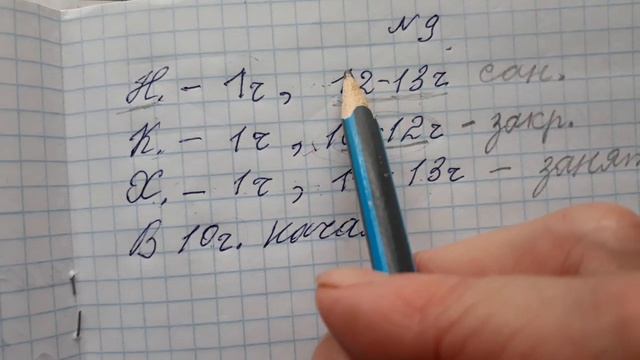 N 9
Н. - 1ч, 12-13ч сан.
К. - 1ч, 12ч - закр.
Х. - 1ч, 13ч - занят
В 10ч. нача